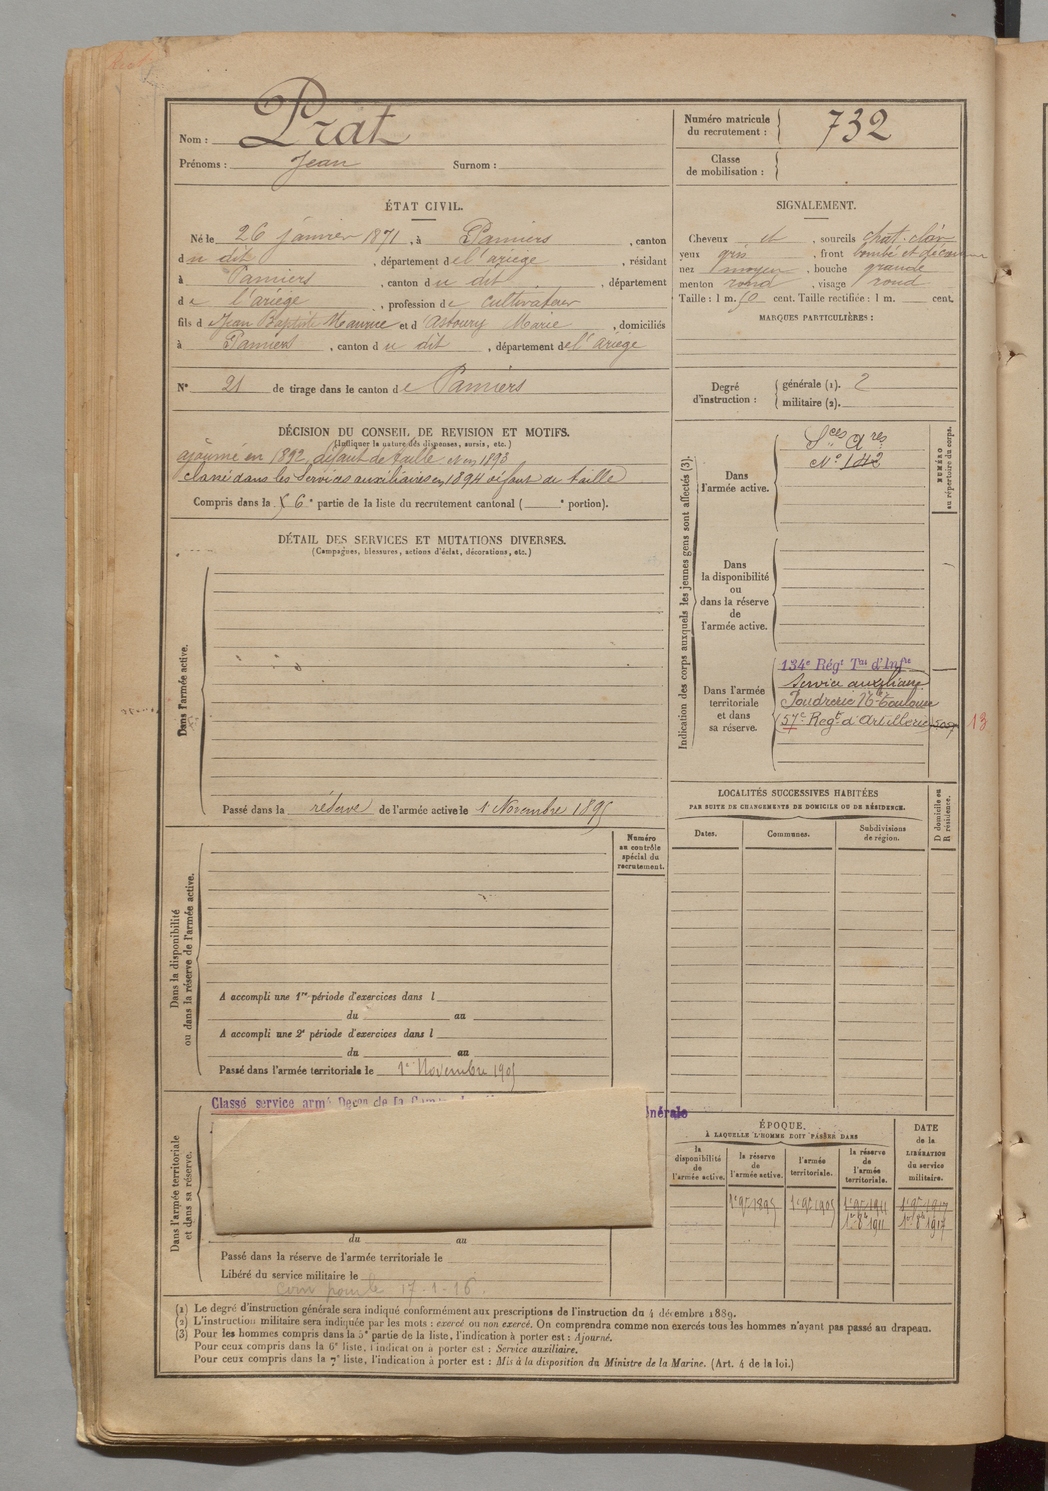 Nom : Prat
Prénoms : Jean Surnom :
Numéro matricule du recrutement : 732
Classe de mobilisation :
ÉTAT CIVIL.
Né le 26 janvier 1871, à Pamiers, canton
du dit, département de l'ariège, résidant
à Pamiers, canton du dit, département
de l'ariège, profession de cultivateur
fils de Jean Baptiste Maurice et d'Astoury Marie, domiciliés
à Pamiers, canton du dit, département de l'ariège
N° 21 de tirage dans le canton de Pamiers
SIGNALEMENT.
Cheveux et, sourcils chat. clair
yeux gris, front bombé et découvert
nez moyen, bouche grande
menton rond, visage rond
Taille : 1 m. 50 cent. Taille rectifiée : 1 m. cent.
MARQUES PARTICULIÈRES :
Degré d'instruction : générale (1). 2
militaire (2).
DÉCISION DU CONSEIL DE REVISION ET MOTIFS.
(Indiquer la nature des dispenses, sursis, etc.)
ajourné en 1892, défaut de taille et en 1893
classé dans les Services auxiliaires en 1894 défaut de taille
Compris dans la 6e partie de la liste du recrutement cantonal ( e portion).
DÉTAIL DES SERVICES ET MUTATIONS DIVERSES.
(Campagnes, blessures, actions d'éclat, décorations, etc.)
Dans l'armée active.
Passé dans la réserve de l'armée active le 1 Novembre 1895
Dans la disponibilité ou dans la réserve de l'armée active.
Numéro au contrôle spécial du recrutement.
A accompli une 1re période d'exercices dans l
du au
A accompli une 2e période d'exercices dans l
du au
Passé dans l'armée territoriale le 1er Novembre 1905
Dans l'armée territoriale et dans sa réserve.
Classé service armé Décon de la
énérale
du au
Passé dans la réserve de l'armée territoriale le
Libéré du service militaire le
17-1-16
Indication des corps auxquels les jeunes gens sont affectés (3).
NUMÉRO au répertoire du corps.
Dans l'armée active.
Sces Ares
N° 142
Dans la disponibilité ou dans la réserve de l'armée active.
Dans l'armée territoriale et dans sa réserve.
134e Régt Tal d'Infie
Service auxiliaire
Poudrerie Nle Toulouse
57e Regt d'Artillerie
13
LOCALITÉS SUCCESSIVES HABITÉES
PAR SUITE DE CHANGEMENTS DE DOMICILE OU DE RÉSIDENCE.
Dates. Communes. Subdivisions de région.
D domicile ou R résidence.
ÉPOQUE
À LAQUELLE L'HOMME DOIT PASSER DANS
la disponibilité de l'armée active.
la réserve de l'armée active.
l'armée territoriale.
la réserve de l'armée territoriale.
DATE de la LIBÉRATION du service militaire.
1er 9e 1895 1er 9e 1905 1er 9e 1911 1er 9e 1917
1er 8e 1911 1er 8e 1917
(1) Le degré d'instruction générale sera indiqué conformément aux prescriptions de l'instruction du 4 décembre 1889.
(2) L'instruction militaire sera indiquée par les mots : exercé ou non exercé. On comprendra comme non exercés tous les hommes n'ayant pas passé au drapeau.
(3) Pour les hommes compris dans la 5e partie de la liste, l'indication à porter est : Ajourné.
Pour ceux compris dans la 6e liste, l'indication à porter est : Service auxiliaire.
Pour ceux compris dans la 7e liste, l'indication à porter est : Mis à la disposition du Ministre de la Marine. (Art. 4 de la loi.)